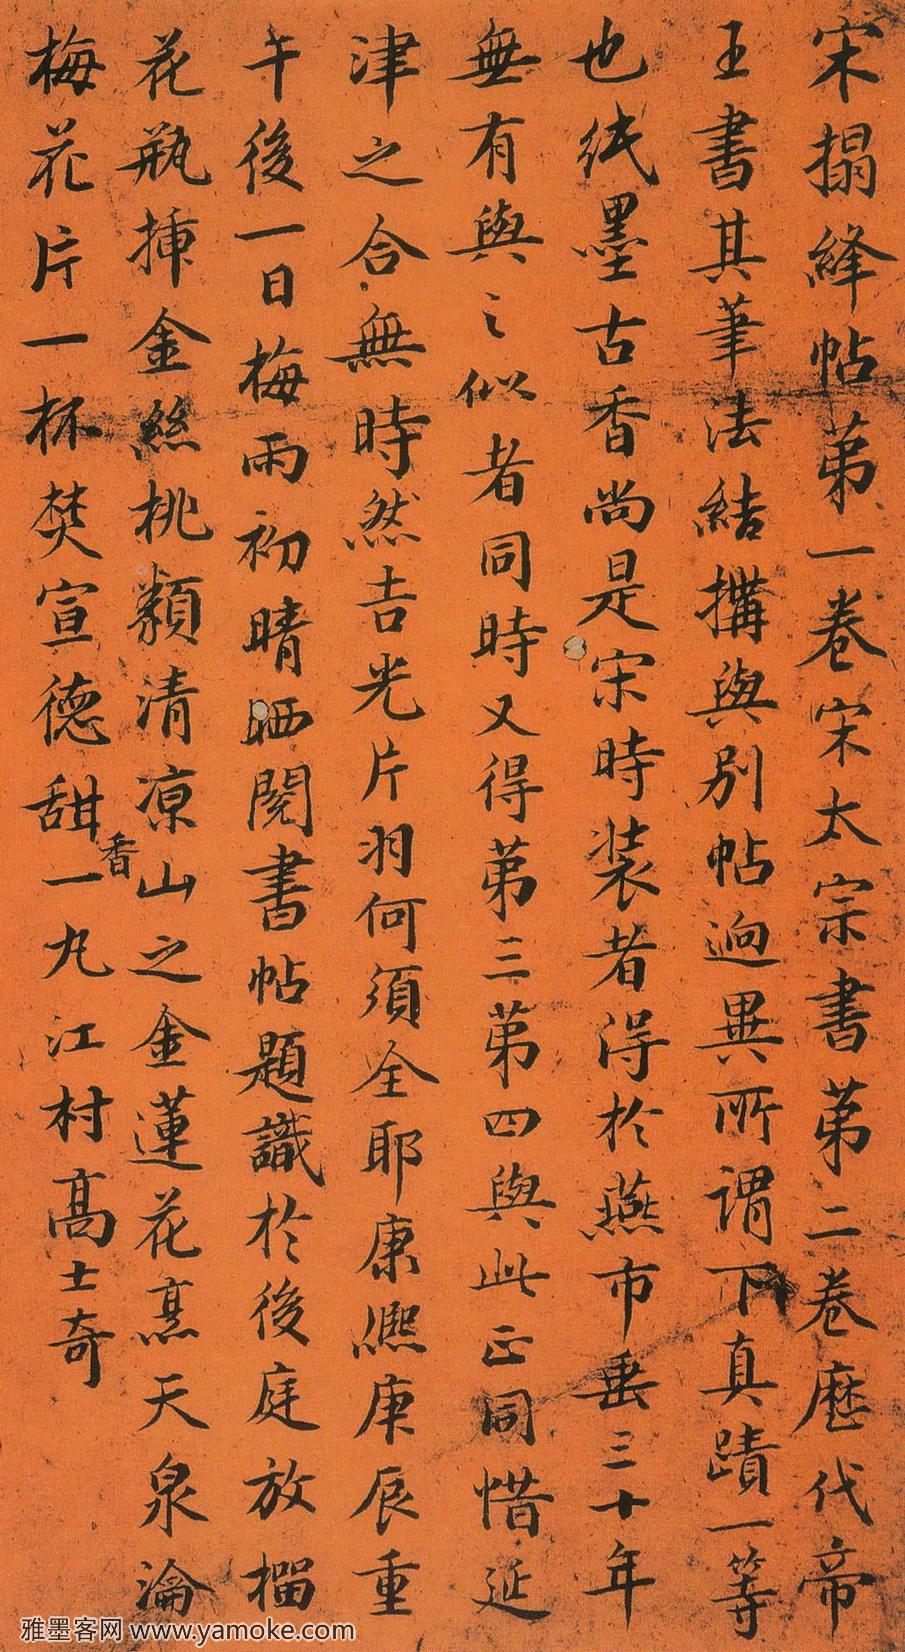 宋搨絳帖第一卷宋太宗書第二卷歷代帝
王書其筆法結搆與別帖逈異所謂下真蹟一等
也紙墨古香尚是宋時装者得於燕市垂三十年
無有與之似者同時又得第三第四與此正同惜延
津之合無時然吉光片羽何須全耶康熈庚辰重
午後一日梅雨初晴晒閱書帖題識於後庭放榴
花瓶揷金絲桃纇清凉山之金蓮花熹天泉瀹
梅花片一杯焚宣德甜香一丸江村高士奇
雅墨客网 www.yamoke.com